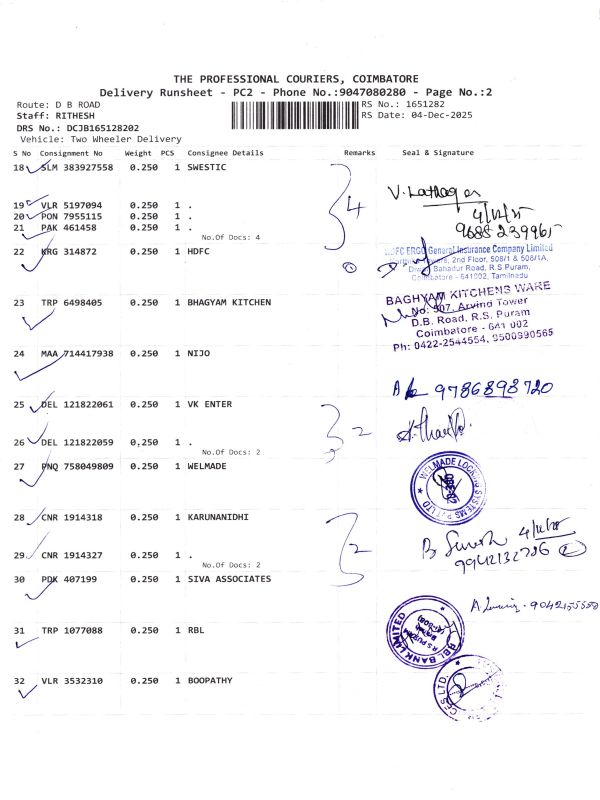 THE PROFESSIONAL COURIERS, COIMBATORE
Delivery Runsheet - PC2 - Phone No.:9047080280 - Page No.:2
Route: D B ROAD
RS No.: 1651282
Staff: RITHESH
RS Date: 04-Dec-2025
DRS No.: DCJB165128202
Vehicle: Two Wheeler Delivery
S No Consignment No Weight PCS Consignee Details Remarks Seal & Signature
18 SLM 383927558 0.250 1 SWESTIC
4
19 VLR 5197094 0.250 1 .
4/12/25
20 PON 7955115 0.250 1 .
21 PAK 461458 0.250 1 .
9688239965
No.Of Docs: 4
22 KRG 314872 0.250 1 HDFC
HDFC ERGO General Insurance Company Limited
2nd Floor, 508/1 & 508/1A,
Bahadur Road, R.S Puram,
Coimbatore - 641002, Tamilnadu
23 TRP 6498405 0.250 1 BHAGYAM KITCHEN
BAGHYAM KITCHENS WARE
No: 507, Arvind Tower
D.B. Road, R.S. Puram
Coimbatore - 641 002
Ph: 0422-2544554, 9500990565
24 MAA 714417938 0.250 1 NIJO
9786898720
25 DEL 121822061 0.250 1 VK ENTER
2
26 DEL 121822059 0.250 1 .
No.Of Docs: 2
27 PNQ 758049809 0.250 1 WELMADE
WELMADE LOCKING SYSTEMS PVT LTD
28 CNR 1914318 0.250 1 KARUNANIDHI
2
B Suresh
29 CNR 1914327 0.250 1 .
9942132786 2
No.Of Docs: 2
30 PDK 407199 0.250 1 SIVA ASSOCIATES
9042155550
31 TRP 1077088 0.250 1 RBL
RBL BANK LIMITED
32 VLR 3532310 0.250 1 BOOPATHY